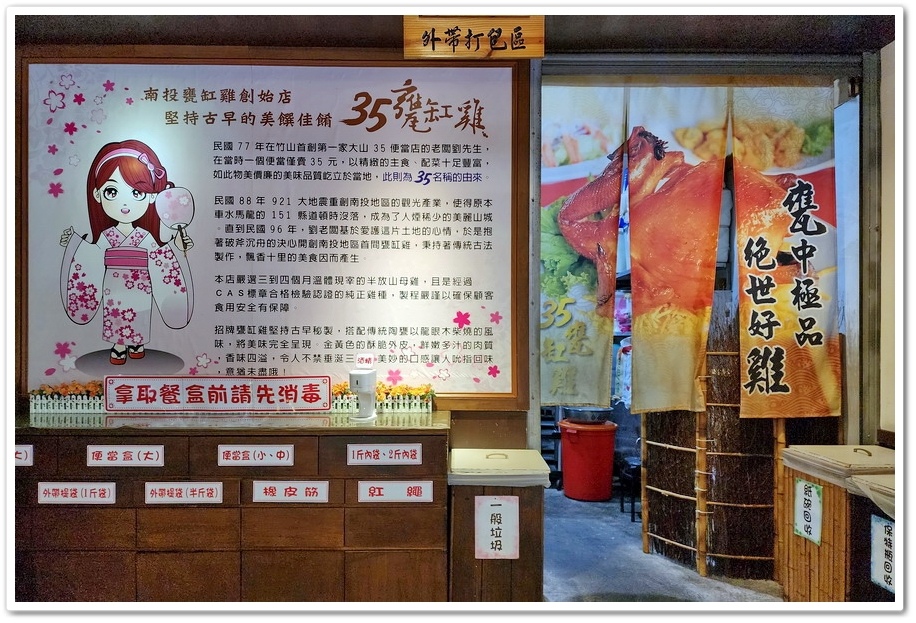 外帶打包區
南投甕缸雞創始店
堅持古早的美饌佳餚
35甕缸雞
民國 77 年在竹山首創第一家大山 35 便當店的老闆劉先生，
在當時一個便當僅賣 35 元，以精緻的主食、配菜十足豐富，
如此物美價廉的美味品質屹立於當地，此則為35名稱的由來。
民國 88 年 921 大地震重創南投地區的觀光產業，使得原本
車水馬龍的 151 縣道頓時沒落，成為了人煙稀少的美麗山城
。直到民國 96 年，劉老闆基於愛護這片土地的心情，於是抱
著破斧沉舟的決心開創南投地區首間甕缸雞，秉持著傳統古法
製作，飄香十里的美食因而產生。
本店嚴選三到四個月溫體現宰的半放山母雞，且是經過
CAS標章合格檢驗認證的純正雞種，製程嚴謹以確保顧客
食用安全有保障。
招牌甕缸雞堅持古早秘製，搭配傳統陶甕以龍眼木柴燒的風
味，將美味完全呈現。金黃色的酥脆外皮、鮮嫩多汁的肉質
，香味四溢，令人不禁垂涎三 美妙的口感讓人吮指回味
，意猶未盡哦！
酒精
拿取餐盒前請先消毒
大)
便當盒(大)
便當盒(小、中)
1斤內袋、2斤內袋
外帶提袋(1斤袋)
外帶提袋(半斤袋)
橡皮筋
紅繩
一般垃圾
35甕缸雞
甕中極品
絕世好雞
紙碗回收
保特瓶回收